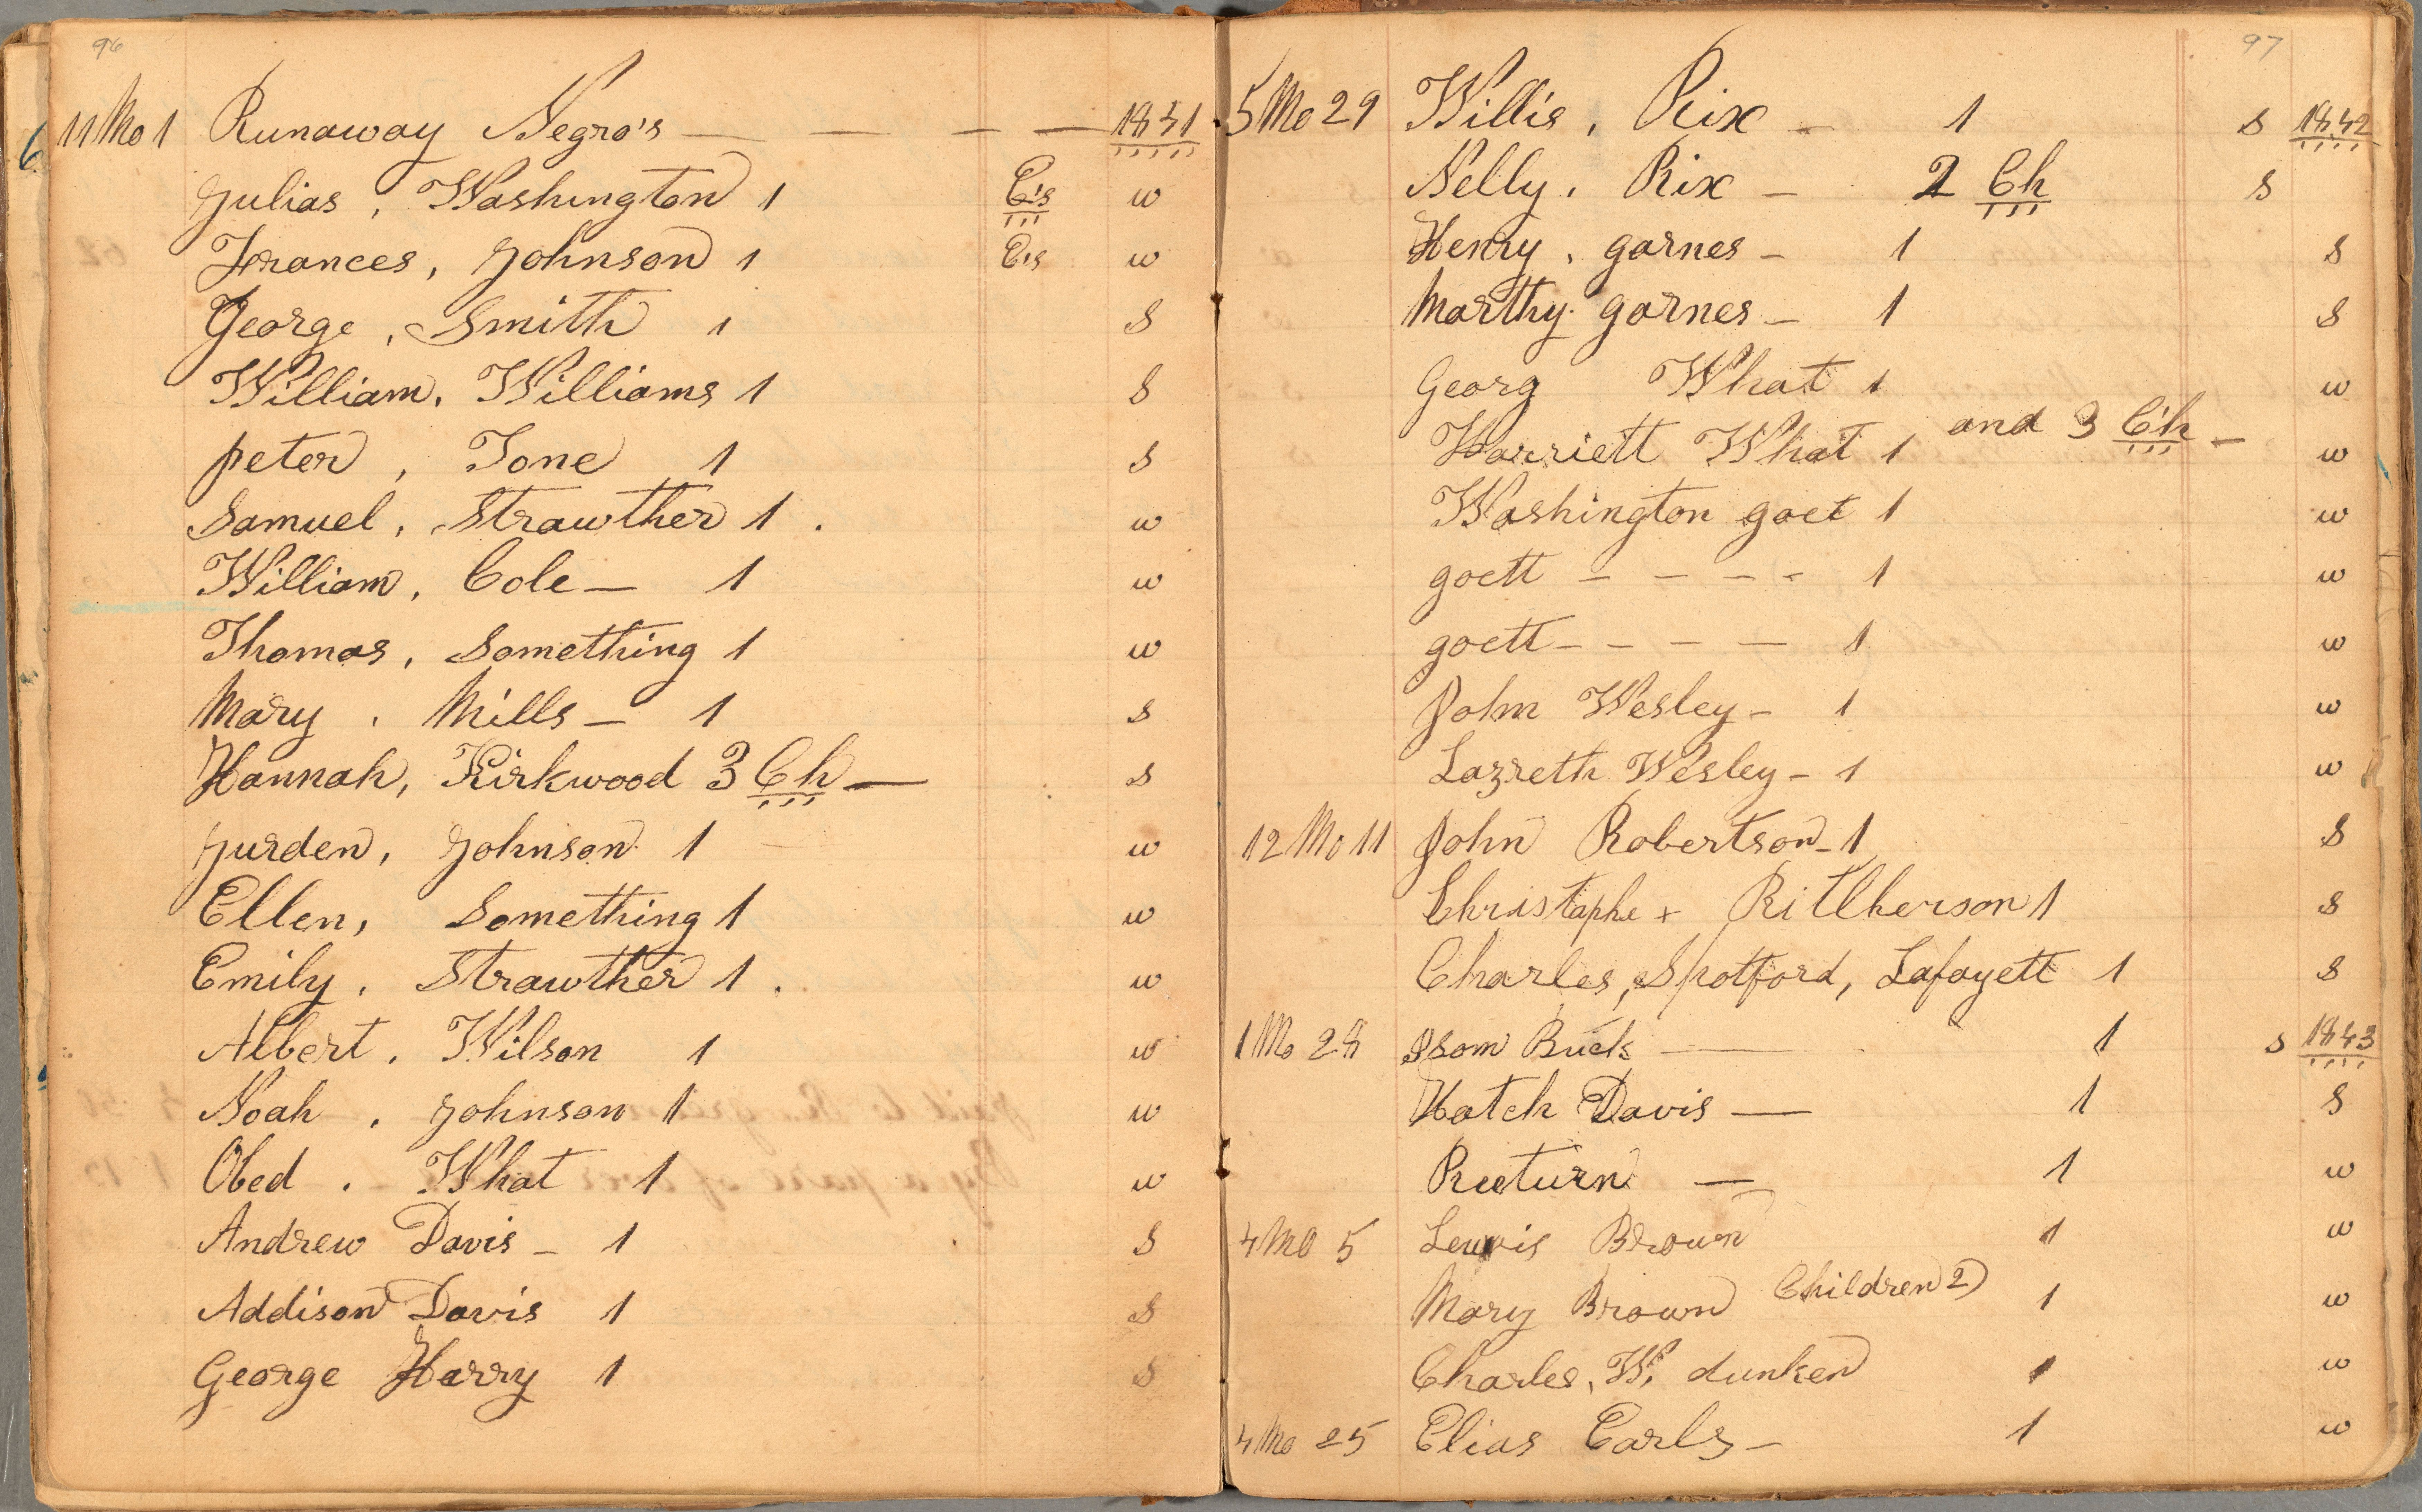 96
11 Mo 1 Runaway Negro's — — — — 1841
Julias, Washington 1 Cis w
Frances, Johnson 1 Cis w
George, Smith 1 S
William, Williams 1 S
peter, Tone 1 S
Samuel, Strawther 1. w
William, Cole — 1 w
Thomas, Something 1 w
Mary, Mills — 1 S
Hannah, Kirkwood 3 Ch — S
Jurden, Johnson 1 w
Ellen, Something 1 w
Emily, Strawther 1. w
Albert, Wilson 1 w
Noah, Johnson 1 w
Obed. What 1 w
Andrew Davis — 1 S
Addison Davis 1 S
George Harry 1 S
97
5 Mo 29 Willis, Rix — 1 S 1842
Nelly, Rix — 2 Ch S
Henry, garnes — 1 S
Marthy garnes — 1 S
Georg What 1 w
Harriett What 1 and 3 Ch — w
Washington goet 1 w
goett — — — — 1 w
goett — — — — 1 w
John Wesley — 1 w
Lazreth Wesley — 1 w
12 Mo 11 John Robertson — 1 S
Christophe + Ritlherson 1 S
Charles, Spotford, Lafayett 1 S
1 Mo 28 Isom Buck — 1 S 1843
Hatch Davis — 1 S
Reeturn — 1 w
4 Mo 5 Lewis Brown 1 w
Mary Brown Children 2) 1 w
Charles, W, dunken 1 w
4 Mo 25 Elias Earls — 1 w